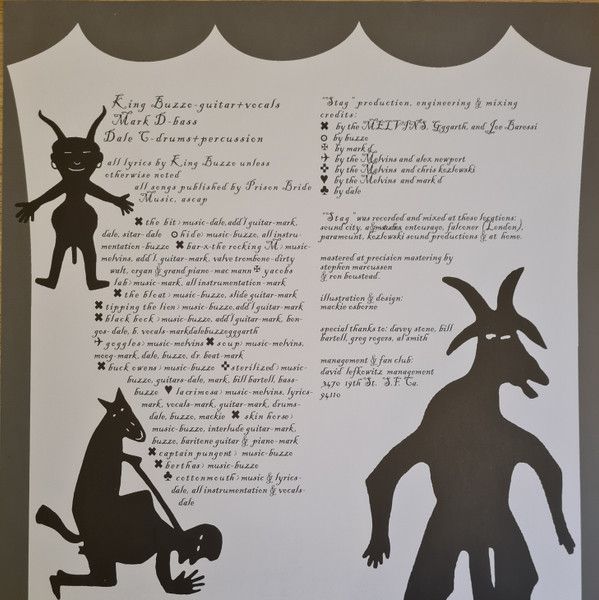 King Buzzo-guitar+vocals
Mark D-bass
Dale C-drums+percussion
all lyrics by King Buzzo unless
otherwise noted
all songs published by Prison Bride
Music, ascap
✖ the bit) music-dale, add'l guitar-mark,
dale, sitar-dale ⊙ hide) music-buzzo, all instru-
mentation-buzzo ✖ bar-x-the rocking M) music-
melvins, add'l. guitar-mark, valve trombone-dirty
walt, organ & grand piano-mac mann ✠ yacobs
lab) music-mark, all instrumentation-mark
✖ the bloat) music-buzzo, slide guitar-mark
✖ tipping the lion) music-buzzo, add'l guitar-mark
✖ black bock) music-buzzo, add'l guitar-mark, bon-
gos-dale, b. vocals-markdalebuzzogggarth
✈ goggles) music-melvins ✖ soup) music-melvins,
moog-mark, dale, buzzo, dr. beat-mark
✖ buck owens) music-buzzo ✤ sterilized) music-
buzzo, guitars-dale, mark, bill bartell, bass-
buzzo ♥ lacrimosa) music-melvins, lyrics-
mark, vocals-mark, guitar-mark, drums-
dale, buzzo, mackie ✖ skin horse)
music-buzzo, interlude guitar-mark,
buzzo, baritone guitar & piano-mark
✖ captain pungent) music-buzzo
✖ berthas) music-buzzo
♣ cottonmouth) music & lyrics-
dale, all instrumentation & vocals-
dale
"Stag" production, engineering & mixing
credits:
✖ by the MELVINS, Gggarth, and Joe Barossi
⊙ by buzzo
✠ by mark d
✈ by the Melvins and alex newport
✤ by the Melvins and chris kozlowski
♥ by the Melvins and mark d
♣ by dale
"Stag" was recorded and mixed at these locations:
sound city, a&m studios, entourage, falconer (London),
paramount, kozlowski sound productions & at home.
mastered at precision mastering by
stephen marcussen
& ron boustead.
illustration & design:
mackie osborne
special thanks to: davey stone, bill
bartell, greg rogers, al smith
management & fan club:
david lefkowitz management
3470 19th St. S.F. Ca.
94110